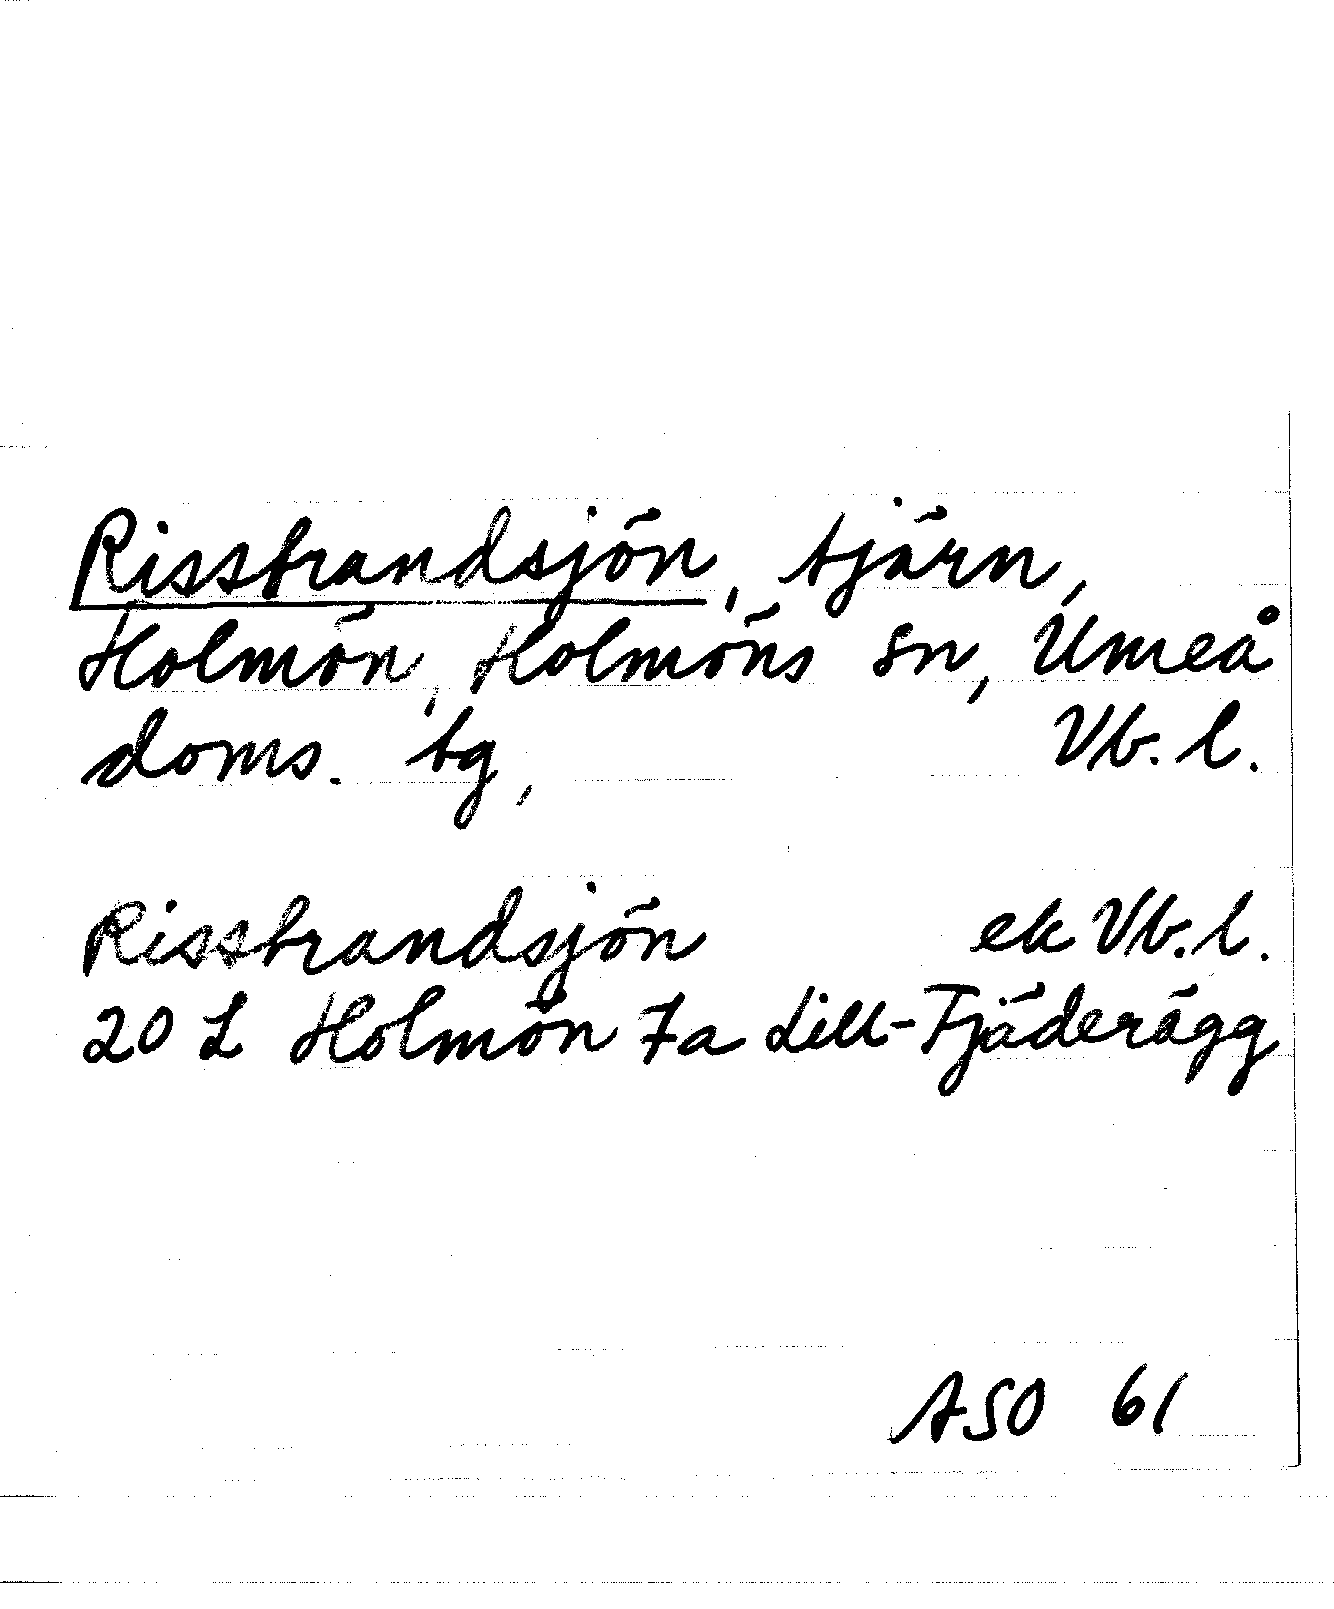 Rissbrandsjön, tjärn,
Holmön, Holmöns sn, Umeå
doms. tg, Vb. l.
Rissbrandsjön ek Vb. l.
20 L Holmön 7a Lill-Fjäderägg
ASO 61